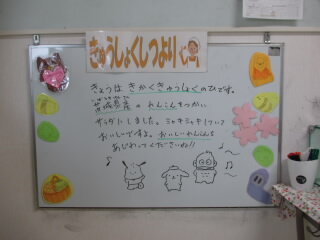 きゅうしょくしつより
きょうは きかくきゅうしょくのひです。
茨城県産の れんこんをつかい
サラダにしました。シャキシャキしていて
おいしいですよ。おいしいれんこんを
あじわってくださいね!!